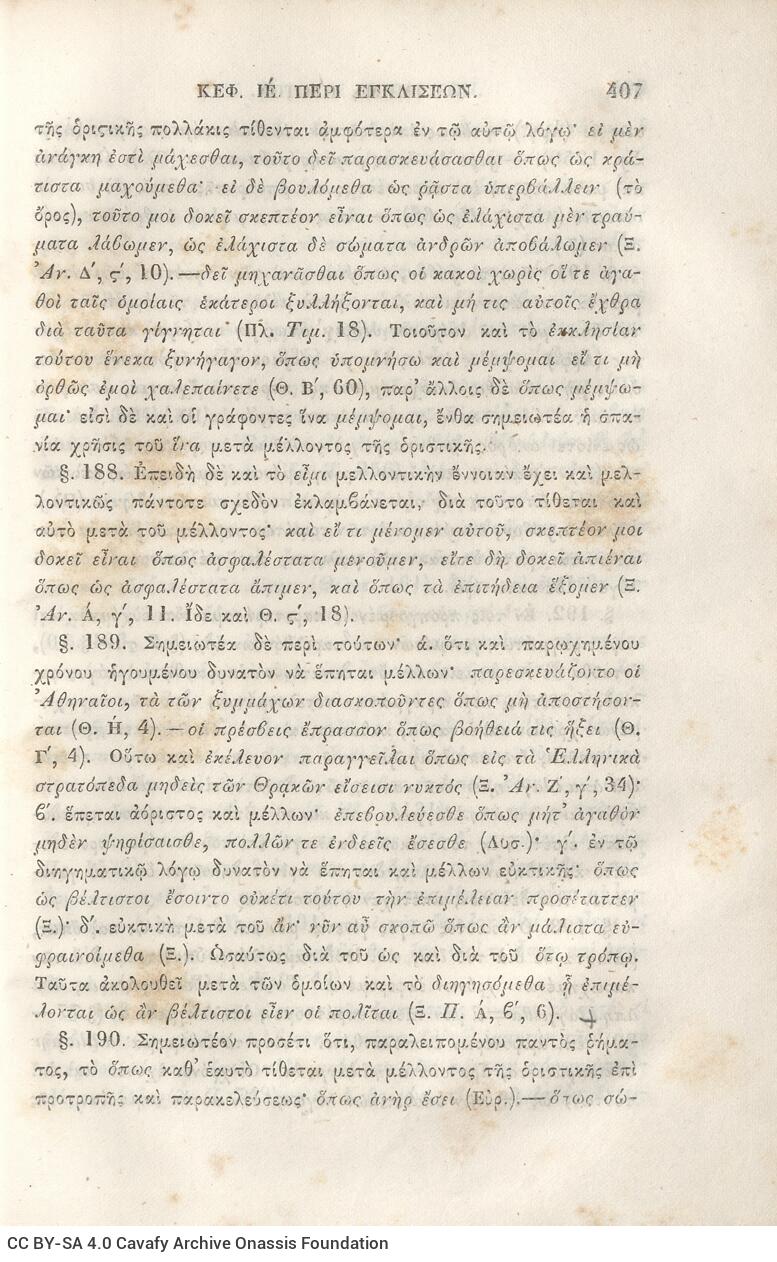 ΚΕΦ. ΙΕ΄. ΠΕΡΙ ΕΓΚΛΙΣΕΩΝ. 407
τῆς ὁριϛικῆς πολλάκις τίθενται ἀμφότερα ἐν τῷ αὐτῷ λόγῳ· εἰ μὲν
ἀνάγκη ἐστὶ μάχεσθαι, τοῦτο δεῖ παρασκευάσασθαι ὅπως ὡς κρά-
τιστα μαχούμεθα· εἰ δὲ βουλόμεθα ὡς ῥᾷστα ὑπερβάλλειν (τὸ
ὄρος), τοῦτό μοι δοκεῖ σκεπτέον εἶναι ὅπως ὡς ἐλάχιστα μὲν τραύ-
ματα λάβωμεν, ὡς ἐλάχιστα δὲ σώματα ἀνδρῶν ἀποβάλωμεν (Ξ.
Ἀν. Δ΄, ϛ΄, 10).—δεῖ μηχανᾶσθαι ὅπως οἱ κακοὶ χωρὶς οἵ τε ἀγα-
θοὶ ταῖς ὁμοίαις ἑκάτεροι ξυλλήξονται, καὶ μή τις αὐτοῖς ἔχθρα
διὰ ταῦτα γίγνηται· (Πλ. Τιμ. 18). Τοιοῦτον καὶ τὸ ἐκκλησίαν
τούτου ἕνεκα ξυνήγαγον, ὅπως ὑπομνήσω καὶ μέμψομαι εἴ τι μὴ
ὀρθῶς ἐμοὶ χαλεπαίνετε (Θ. Β΄, 60), παρ’ ἄλλοις δὲ ὅπως μέμψω-
μαι· εἰσὶ δὲ καὶ οἱ γράφοντες ἵνα μέμψομαι, ἔνθα σημειωτέα ἡ σπα-
νία χρῆσις τοῦ ἵνα μετὰ μέλλοντος τῆς ὁριστικῆς.
§. 188. Ἐπειδὴ δὲ καὶ τὸ εἶμι μελλοντικὴν ἔννοιαν ἔχει καὶ μελ-
λοντικῶς πάντοτε σχεδὸν ἐκλαμβάνεται, διὰ τοῦτο τίθεται καὶ
αὐτὸ μετὰ τοῦ μέλλοντος· καὶ εἴ τι μένομεν αὐτοῦ, σκεπτέον μοι
δοκεῖ εἶναι ὅπως ἀσφαλέστατα μενοῦμεν, εἴτε δὴ δοκεῖ ἀπιέναι
ὅπως ὡς ἀσφαλέστατα ἄπιμεν, καὶ ὅπως τὰ ἐπιτήδεια ἕξομεν (Ξ.
Ἀν. Α΄, γ΄, 11. Ἴδε καὶ Θ. ϛ΄, 18).
§. 189. Σημειωτέα δὲ περὶ τούτων· ά. ὅτι καὶ παρῳχημένου
χρόνου ἡγουμένου δυνατὸν νὰ ἕπηται μέλλων· παρεσκευάζοντο οἱ
Ἀθηναῖοι, τὰ τῶν ξυμμάχων διασκοποῦντες ὅπως μὴ ἀποστήσον-
ται (Θ. Η΄, 4).—οἱ πρέσβεις ἔπρασσον ὅπως βοήθειά τις ἥξει (Θ.
Γ΄, 4). Οὕτω καὶ ἐκέλευον παραγγεῖλαι ὅπως εἰς τὰ Ἑλληνικὰ
στρατόπεδα μηδεὶς τῶν Θρᾳκῶν εἴσεισι νυκτός (Ξ. Ἀν. Ζ΄, γ΄, 34)·
ϐ΄. ἕπεται ἀόριστος καὶ μέλλων· ἐπεβουλεύεσθε ὅπως μήτ’ ἀγαθὸν
μηδὲν ψηφίσαισθε, πολλῶν τε ἐνδεεῖς ἔσεσθε (Λυσ.)· γ΄. ἐν τῷ
διηγηματικῷ λόγῳ δυνατὸν νὰ ἕπηται καὶ μέλλων εὐκτικῆς· ὅπως
ὡς βέλτιστοι ἔσοιντο οὐκέτι τούτου τὴν ἐπιμέλειαν προσέταττεν
(Ξ.)· δ΄. εὐκτικὴ μετὰ τοῦ ἄν· νῦν αὖ σκοπῶ ὅπως ἂν μάλιστα εὐ-
φραινοίμεθα (Ξ.). Ὡσαύτως διὰ τοῦ ὡς καὶ διὰ τοῦ ὅτῳ τρόπῳ.
Ταῦτα ἀκολουθεῖ μετὰ τῶν ὁμοίων καὶ τὸ διηγησόμεθα ᾗ ἐπιμέ-
λονται ὡς ἂν βέλτιστοι εἶεν οἱ πολῖται (Ξ. Π. Α΄, ϐ΄, 6).
§. 190. Σημειωτέον προσέτι ὅτι, παραλειπομένου παντὸς ῥήμα-
τος, τὸ ὅπως καθ’ ἑαυτὸ τίθεται μετὰ μέλλοντος τῆς ὁριστικῆς ἐπὶ
προτροπῆς καὶ παρακελεύσεως· ὅπως ἀνὴρ ἔσει (Εὐρ.).—ὅπως σώ-
CC BY-SA 4.0 Cavafy Archive Onassis Foundation